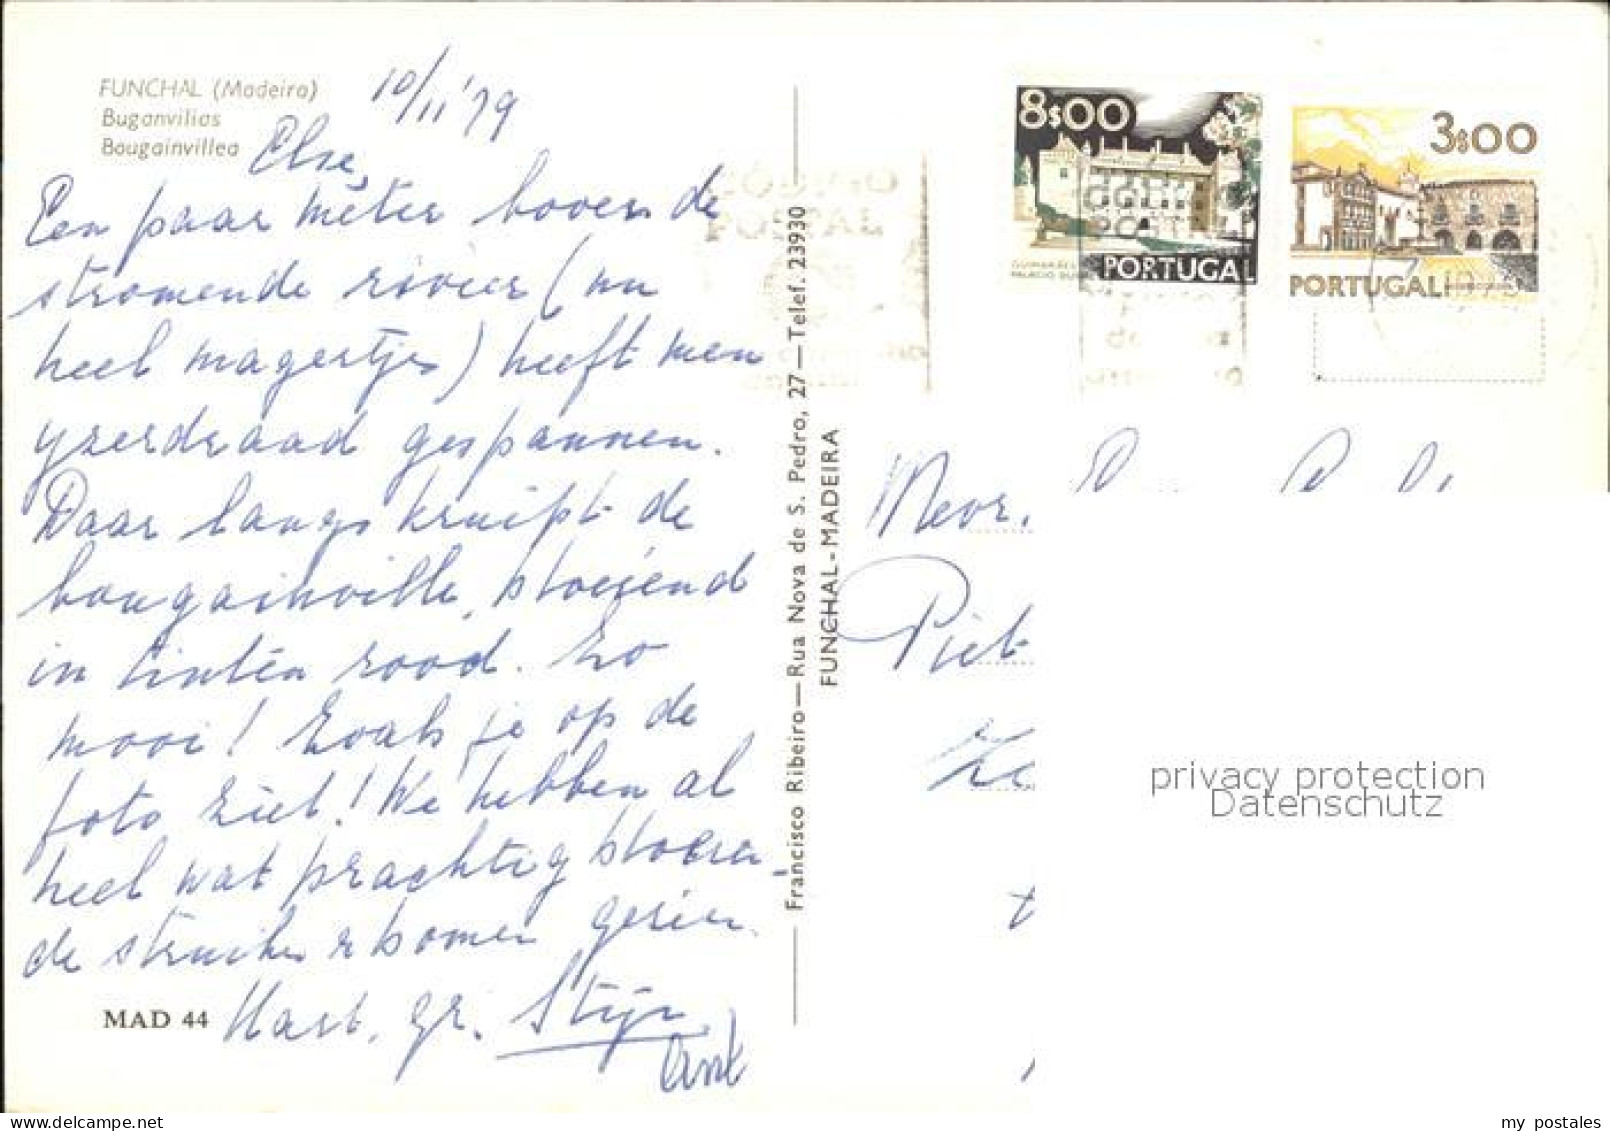 FUNCHAL (Madeira)
Buganvilias
Bougainvillea
10/11 '79
Else,
Een paar meter boven de
stromende rivier (nu
heel magertjes) heeft men
yzerdraad gespannen.
Daar langs kruipt de
bougainville, bloeiend
in tinten rood. Zo
mooi! Zoals je op de
foto ziet! We hebben al
heel wat prachtig bloeien-
de struiken & bomen gezien.
Hart. gr. Stijn
MAD 44
Francisco Ribeiro—Rua Nova de S. Pedro, 27—Telef. 23930
FUNCHAL-MADEIRA
8$00
PORTUGAL
3$00
PORTUGAL
Mevr.
Piet
privacy protection
Datenschutz
my postales